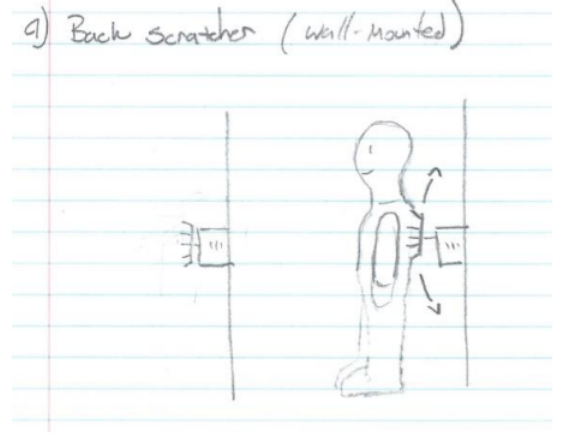 a) Back scratcher (wall-mounted)